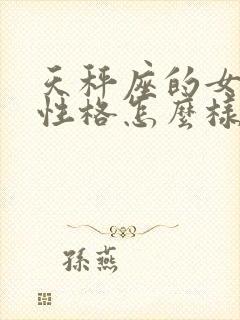 天秤座的女
性格怎麼樣
孫燕